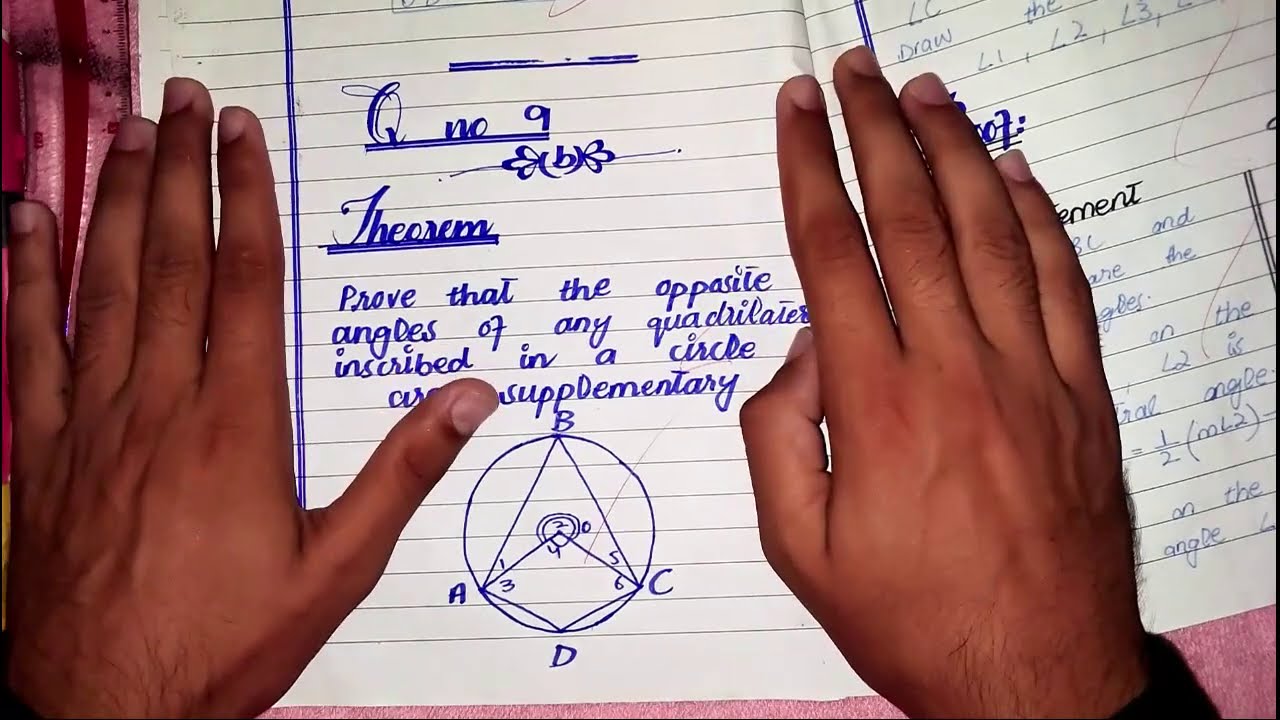 Q no 9
(b)
Theorem
Prove that the opposite
angles of any quadrilater
inscribed in a circle
supplementary
B
2 0
4
1 5
3 6
A C
D
LC
Draw the
L1, L2, L3,
of:
ement
BC and
are the
gles.
on the
, L2 is
ral angle.
= 1/2 (mL2)
on the
angle